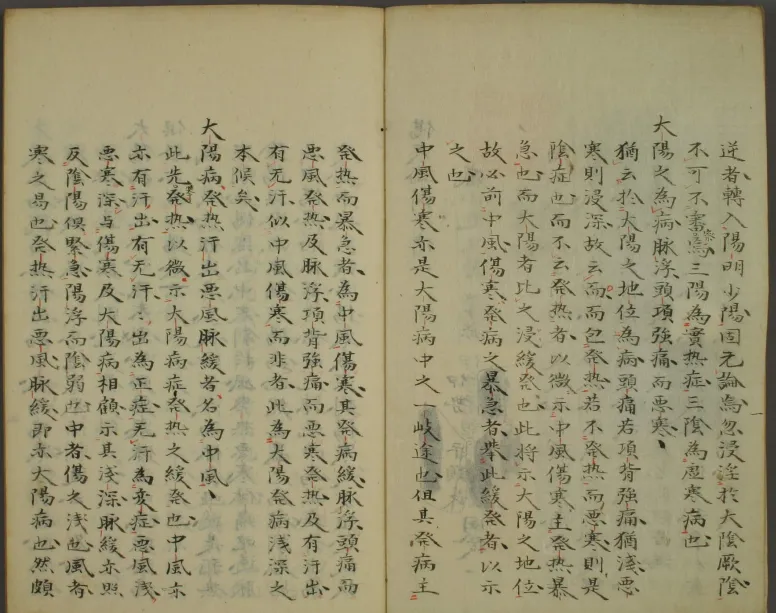 逆者轉入陽明少陽固无論為忽浸淫於大陰厥陰
不可不審焉三陽為實热症三陰為虛寒病也
大陽之為病脉浮頭項強痛而惡寒
猶云於大陽之地位為病頭痛若項背強痛猶淺惡
寒則浸深故云而而忽發热若不發热而惡寒則是
陰症也而不云發热者以微示中風傷寒主發热暴
急也而大陽者比之浸緩發也此將示大陽之地位
故必前中風傷寒發病之暴急者舉此緩發者以示
之也
中風傷寒亦是大陽病中之一歧途也但其發病主
發热而暴急者為中風傷寒其發病緩脉浮頭痛而
惡風發热及脉浮項背強痛而惡寒發热及有汗出
有无汗似中風傷寒而非者此為大陽發病淺深之
本候矣
大陽病發热汗出惡風脉緩者名為中風
此先發热以微示大陽病症發热之緩發也中風亦
亦有汗出有无汗々出為正症无汗為変症惡風淺
惡寒深与傷寒及大陽病相顧示其淺深脉緩亦照
反陰陽俱緊急陽浮而陰弱也中者傷之淺也風者
寒之易也發热汗出惡風脉緩即亦大陽病也然頗